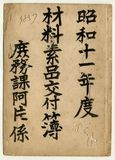 昭和十一年度
材料素品交付簿
庶務課阿片係